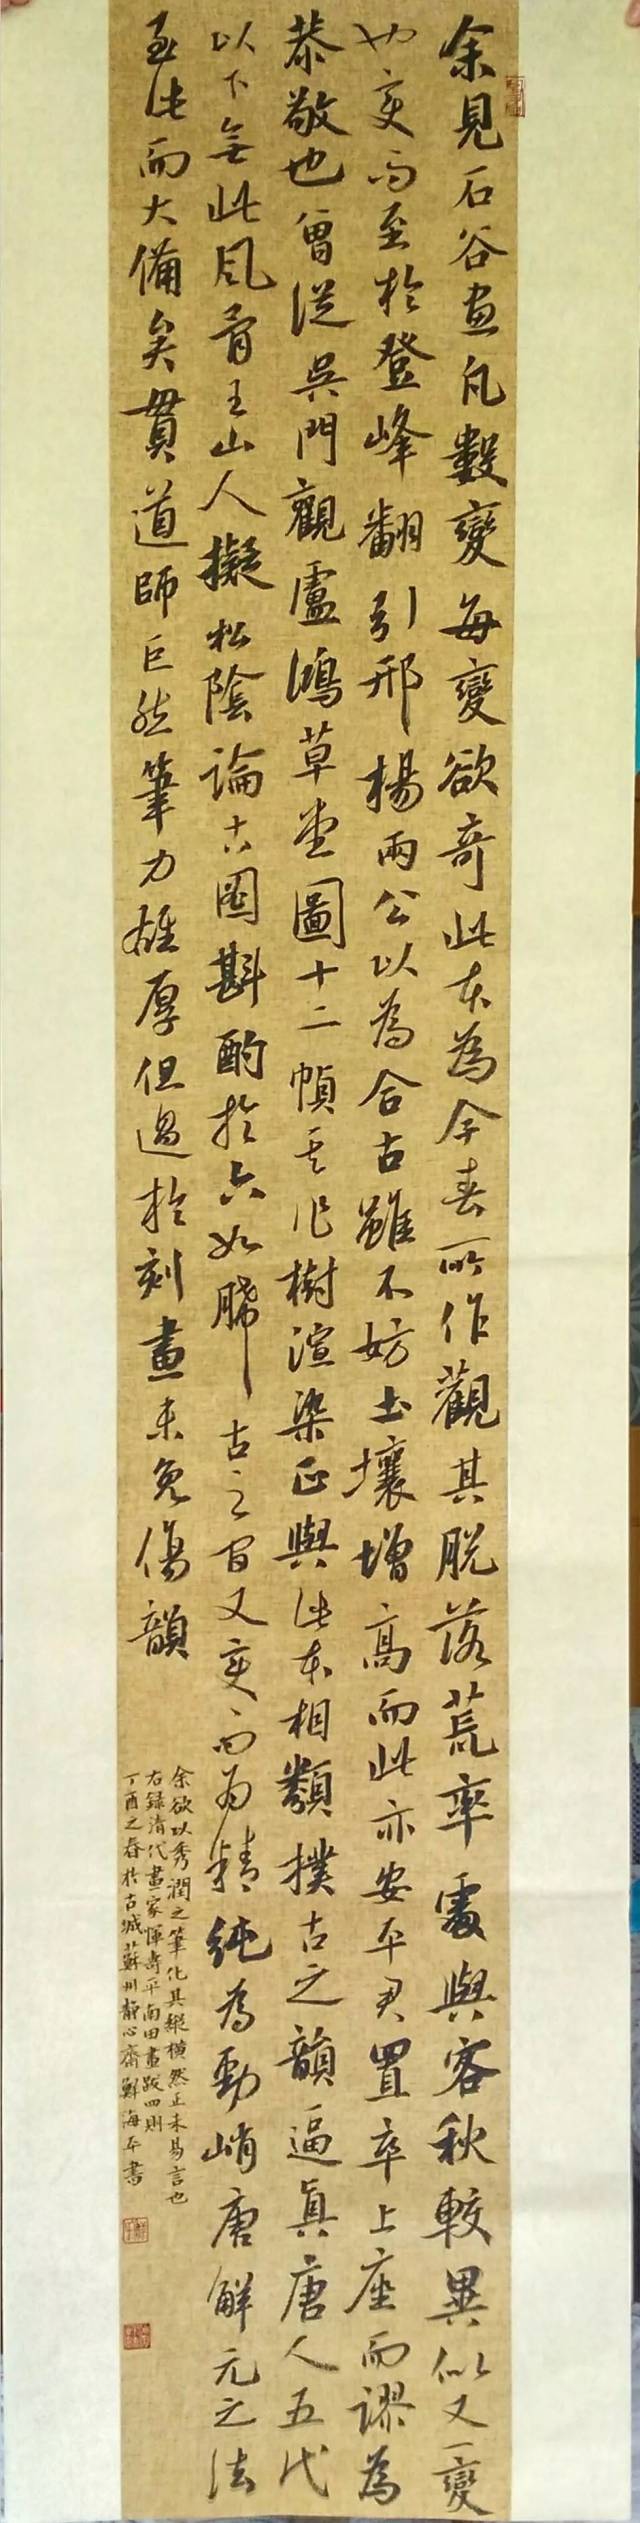 余見石谷畫凡數變每變欲奇此本為今春所作觀其脫落荒率處與客秋較異似又一變
也變而至於登峰翻引邢楊兩公以為合古雖不妨土壤增高而此亦安平君置卒上座而謬為
恭敬也曾從吳門觀盧鴻草堂圖十二幀其作樹渲染正與此本相類撲古之韻逼真唐人五代
以下無此風骨王山人擬松陰論古圖斟酌於六如晞古之間又變而為精純為勁峭唐解元之法
至此而大備矣貫道師巨然筆力雄厚但過於刻畫未免傷韻
余欲以秀潤之筆化其縱橫然正未易言也
右録清代畫家惲壽平南田畫跋四則
丁酉之春於古城蘇州靜心齋鮮海平書